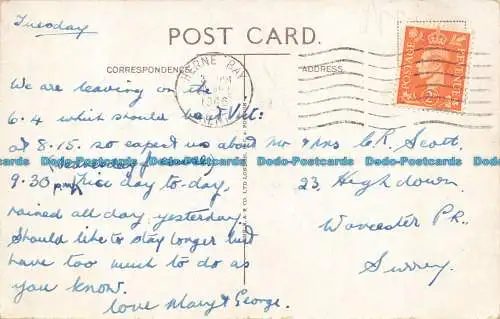 Tuesday
POST CARD.
CORRESPONDENCE
ADDRESS
HERNE BAY
POSTAGE REVENUE
We are leaving on the
6.4 which should be at Vict:
at 8.15. so expect us about
(Wednesday)
9.30 pm. Nice day to-day,
rained all day yesterday.
Should like to stay longer but
have too much to do as
you know.
love Mary & George.
Mr & Mrs C.R. Scott.
23, Highdown
Worcester Pk.
Surrey.
Bado-Postcards Bado-Postcards Bado-Postcards